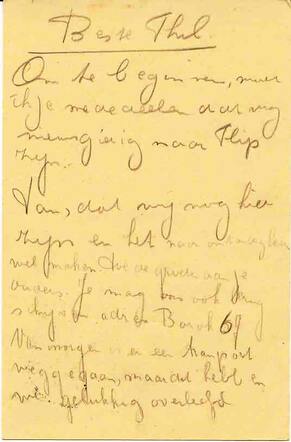 Beste Thil.
Om te beginnen, moet
ik je mededeelen dat wij
nieuwsgierig naar Flip
zijn.
dat wij nog hier
zijn en het naar
wel maken. de groeten aan je
ouders. Je mag ons ook
schrijven adres Barak 69
Van morgen is er een transport
weggegaan, maar dat hebben
we gelukkig overleefd